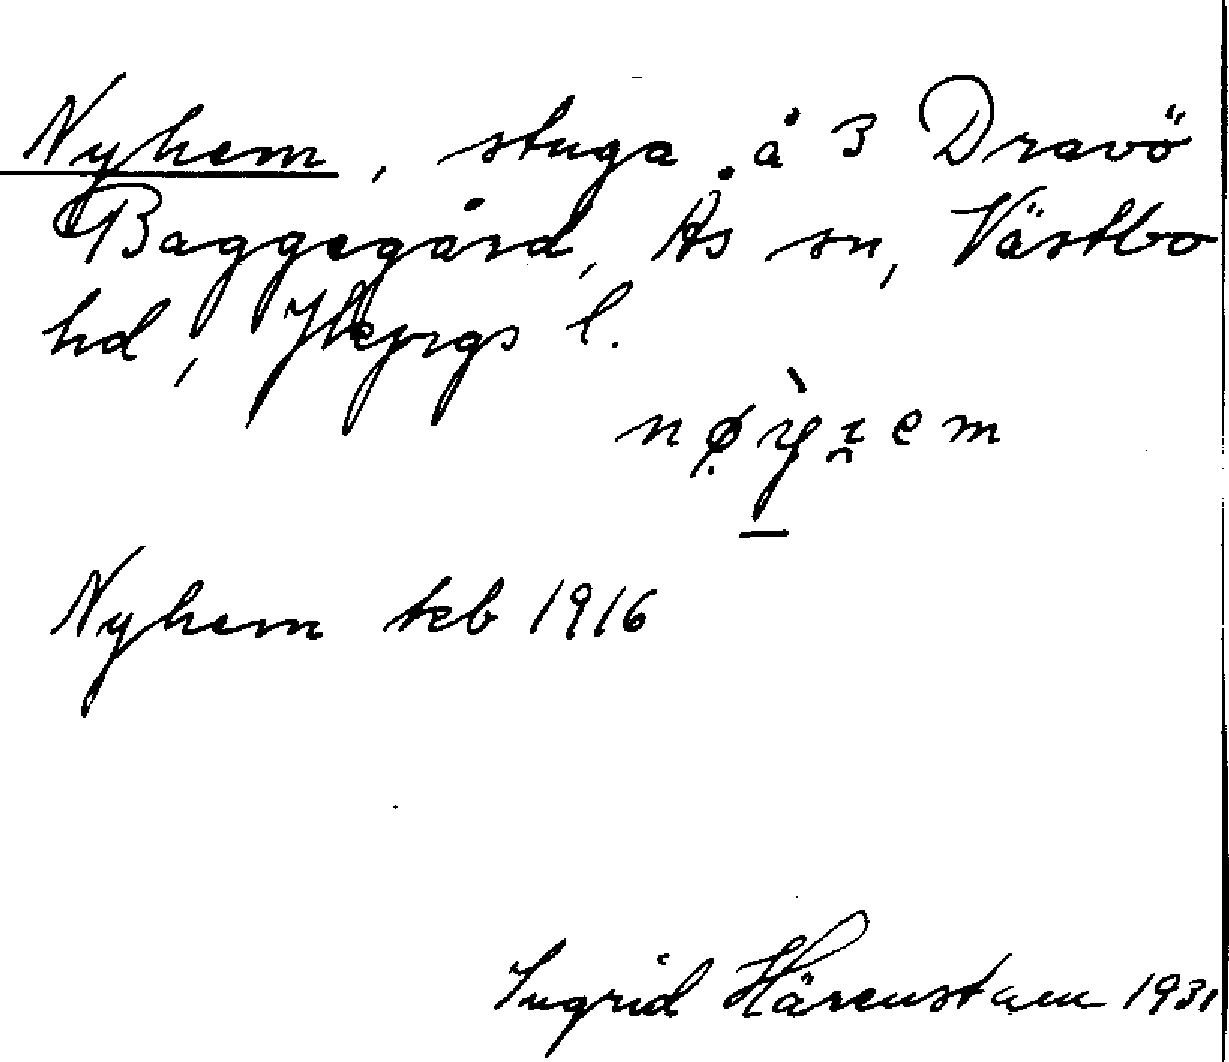 Nyhem, stuga å 3 Dravö
Baggegård, Ås sn, Västbo
hd, Jkpgs l.
Nyhem kb 1916
Ingrid Härenstam 1931